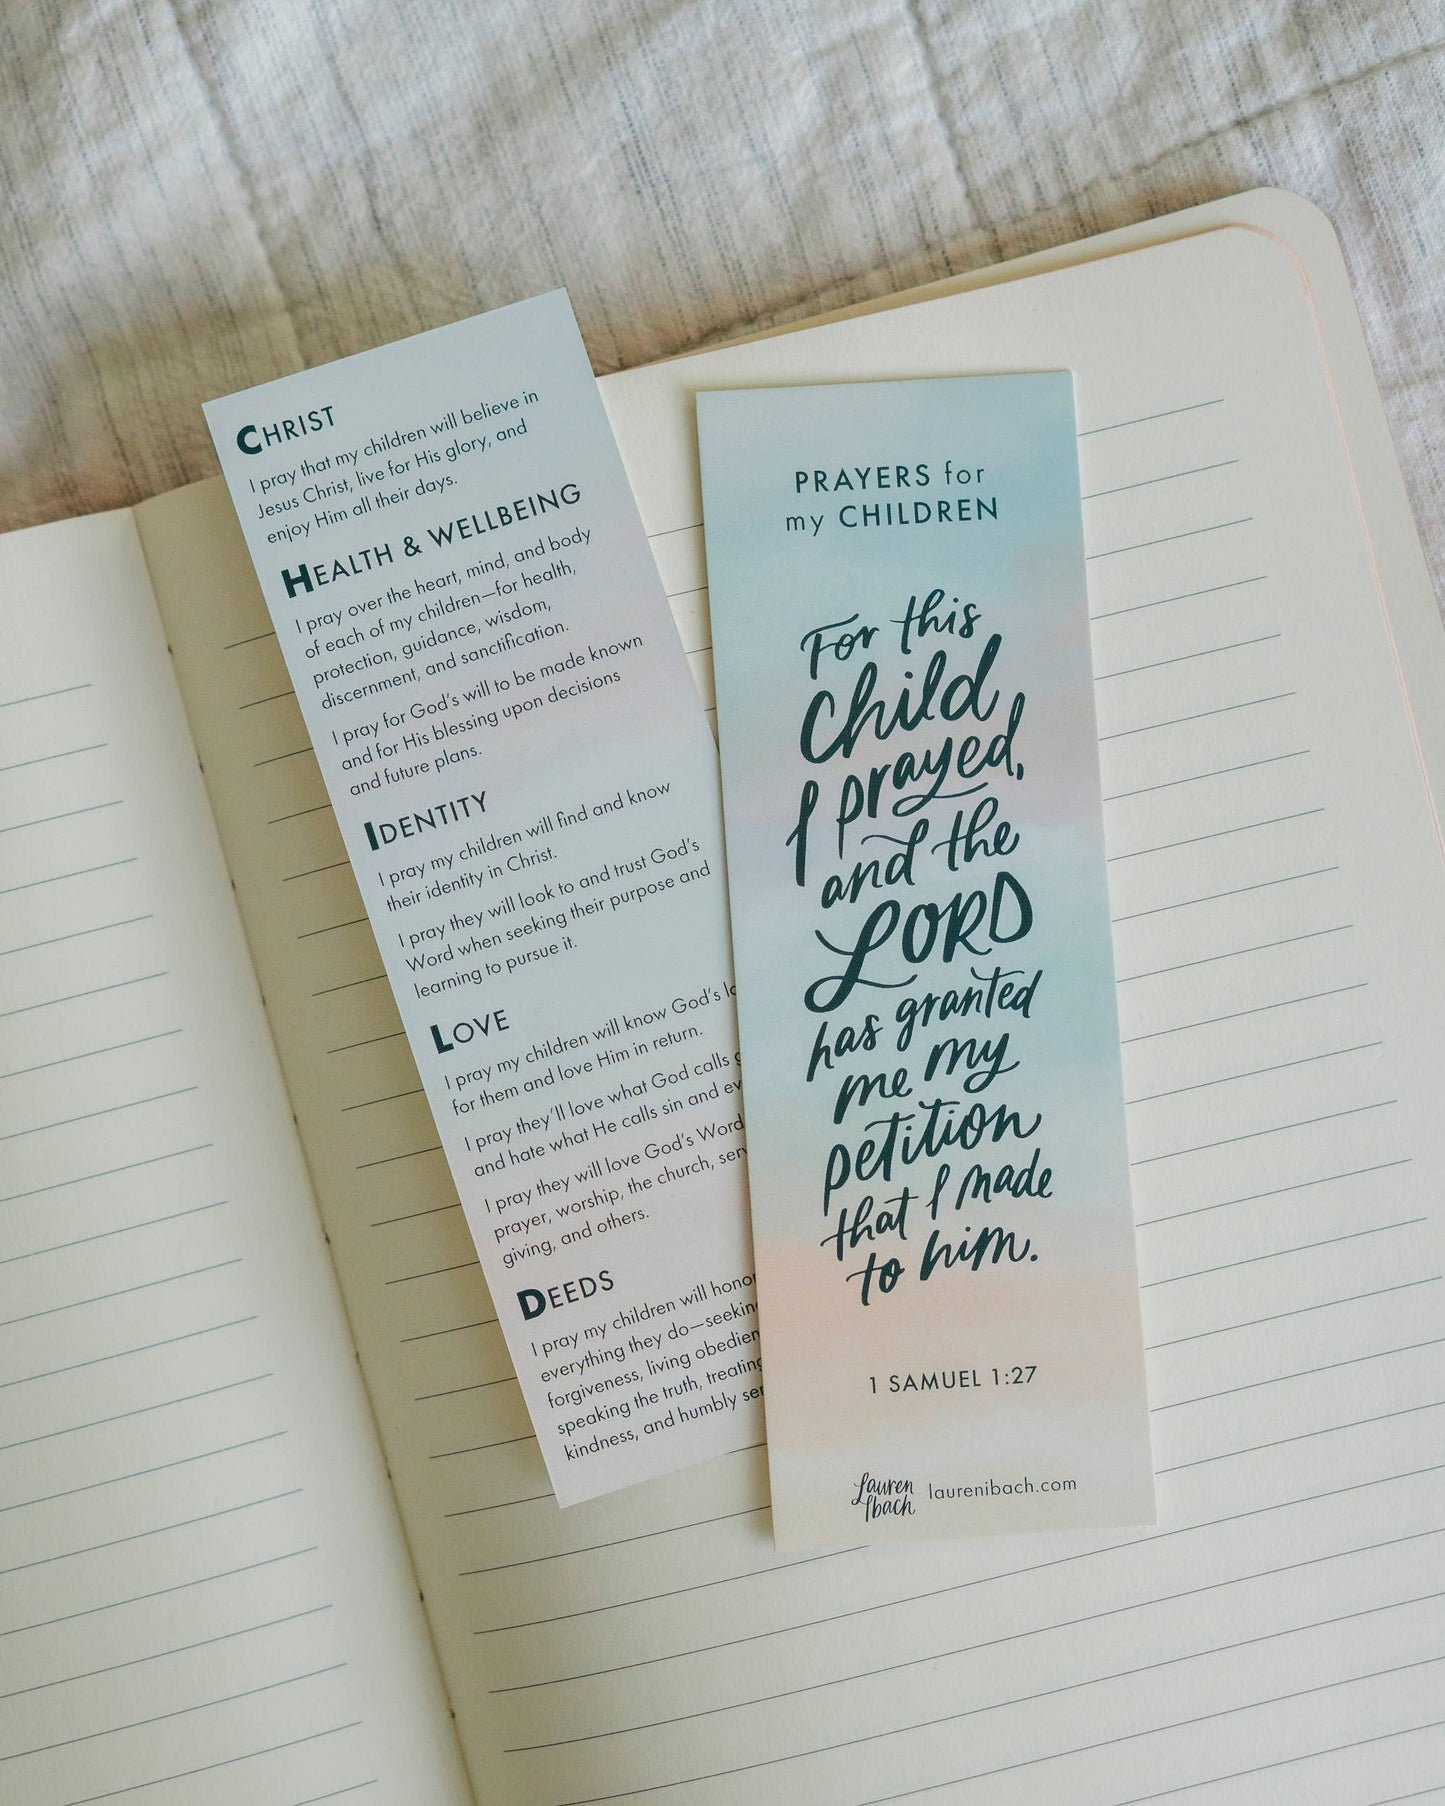 CHRIST
I pray that my children will believe in
Jesus Christ, live for His glory, and
enjoy Him all their days.
HEALTH & WELLBEING
I pray over the heart, mind, and body
of each of my children—for health,
protection, guidance, wisdom,
discernment, and sanctification.
I pray for God's will to be made known
and for His blessing upon decisions
and future plans.
IDENTITY
I pray my children will find and know
their identity in Christ.
I pray they will look to and trust God's
Word when seeking their purpose and
learning to pursue it.
LOVE
I pray my children will know God's
for them and love Him in return.
I pray they'll love what God calls
and hate what He calls sin and
I pray they will love God's Word
prayer, worship, the church,
giving, and others.
DEEDS
I pray my children will
everything they do—
forgiveness, living
speaking the truth,
kindness, and humbly
PRAYERS for
my CHILDREN
For this
child
I prayed,
and the
LORD
has granted
me my
petition
that I made
to him.
1 SAMUEL 1:27
Lauren
Ibach
laurenibach.com